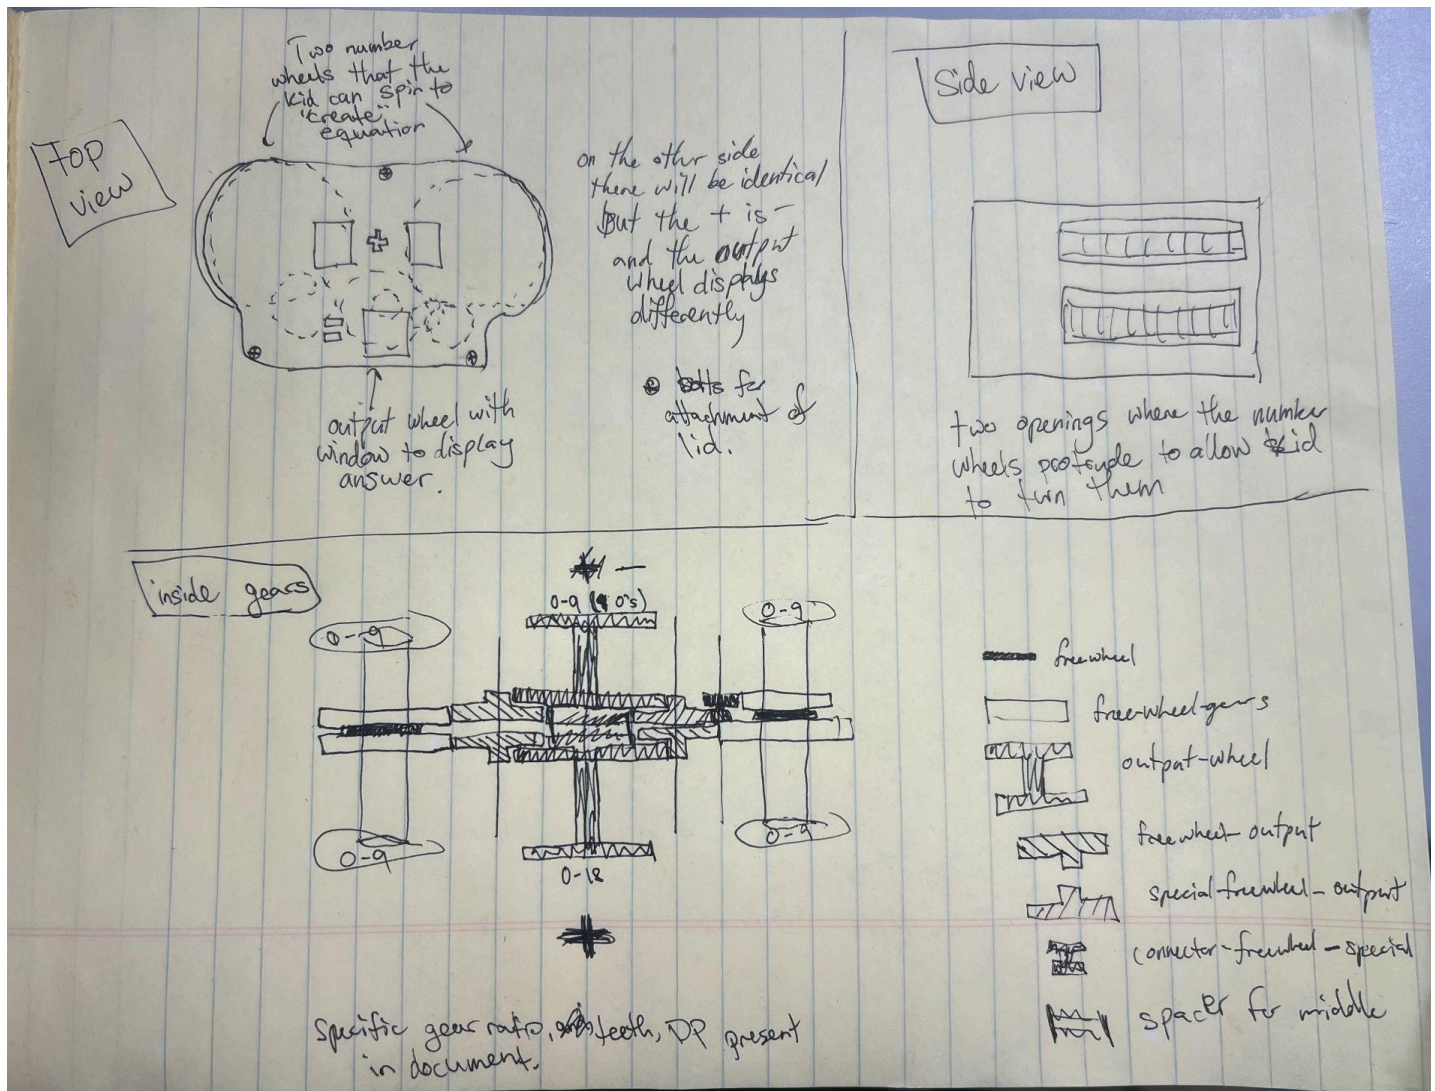 Top
view
Two number
wheels that the
kid can spin to
"create"
equation
+
=
output wheel with
window to display
answer.
on the other side
there will be identical
but the + is -
and the output
wheel displays
differently
bolts for
attachment of
lid.
Side view
two openings where the number
wheels protrude to allow kid
to turn them
inside gears
-
0-9 (9 0's)
0-9
0-9
0-9
0-9
0-18
+
Specific gear ratio, teeth, DP present
in document.
freewheel
free-wheel-gears
output-wheel
freewheel-output
special-freewheel-output
connector-freewheel-special
spacer for middle